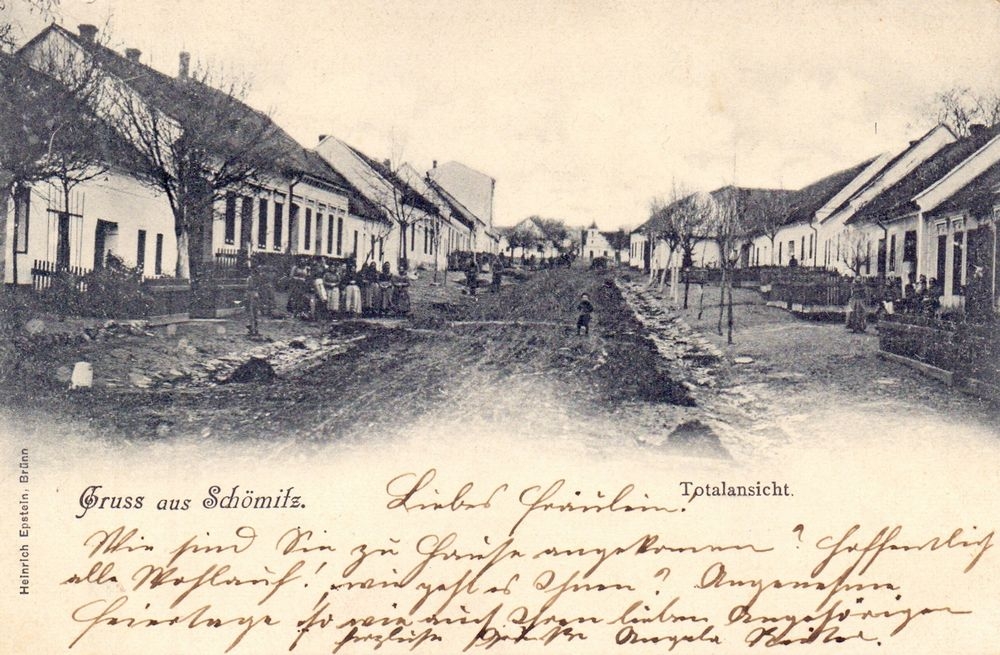 Heinrich Epstein, Brünn
Gruss aus Schömitz.
Totalansicht.
Liebes Fräulein!
Wie sind Sie zu Hause angekommen? Hoffentlich
alle Wohlauf! wie geht es Ihnen? Angenehme
Feiertage so wie auch Ihren lieben Angehörigen
herzliche Grüße Angela